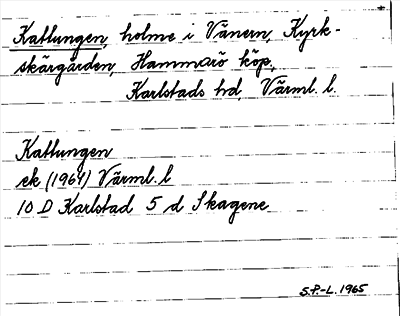 Kattungen, holme i Vänern, Kyrk-
skärgården, Hammarö köp,
Karlstads hd, Värml. l.
Kattungen
ek (1964) Värml. l
10 D Karlstad 5 d Skagene
S.P.-L. 1965